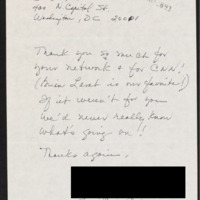 400 N. Capitol St.
Washington, DC 20001
Thank you so much for
your network & for CNN!
(Brian Lamb is our favorite!)
If it weren't for you
we'd never really know
what's going on!!
Thanks again,